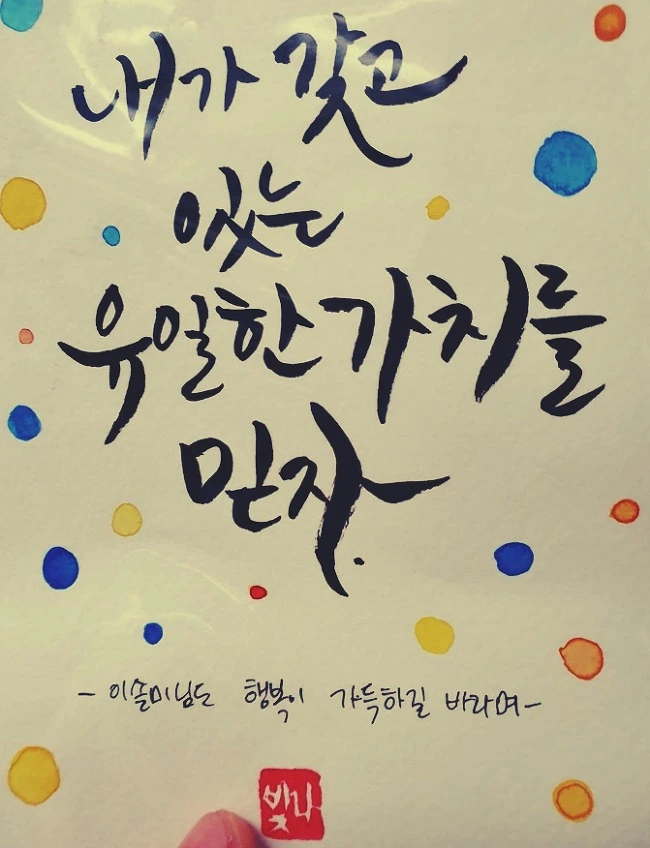 내가 갖고
있는
유일한 가치를
믿자.
- 이솔미님도 행복이 가득하길 바라며 -
빛나